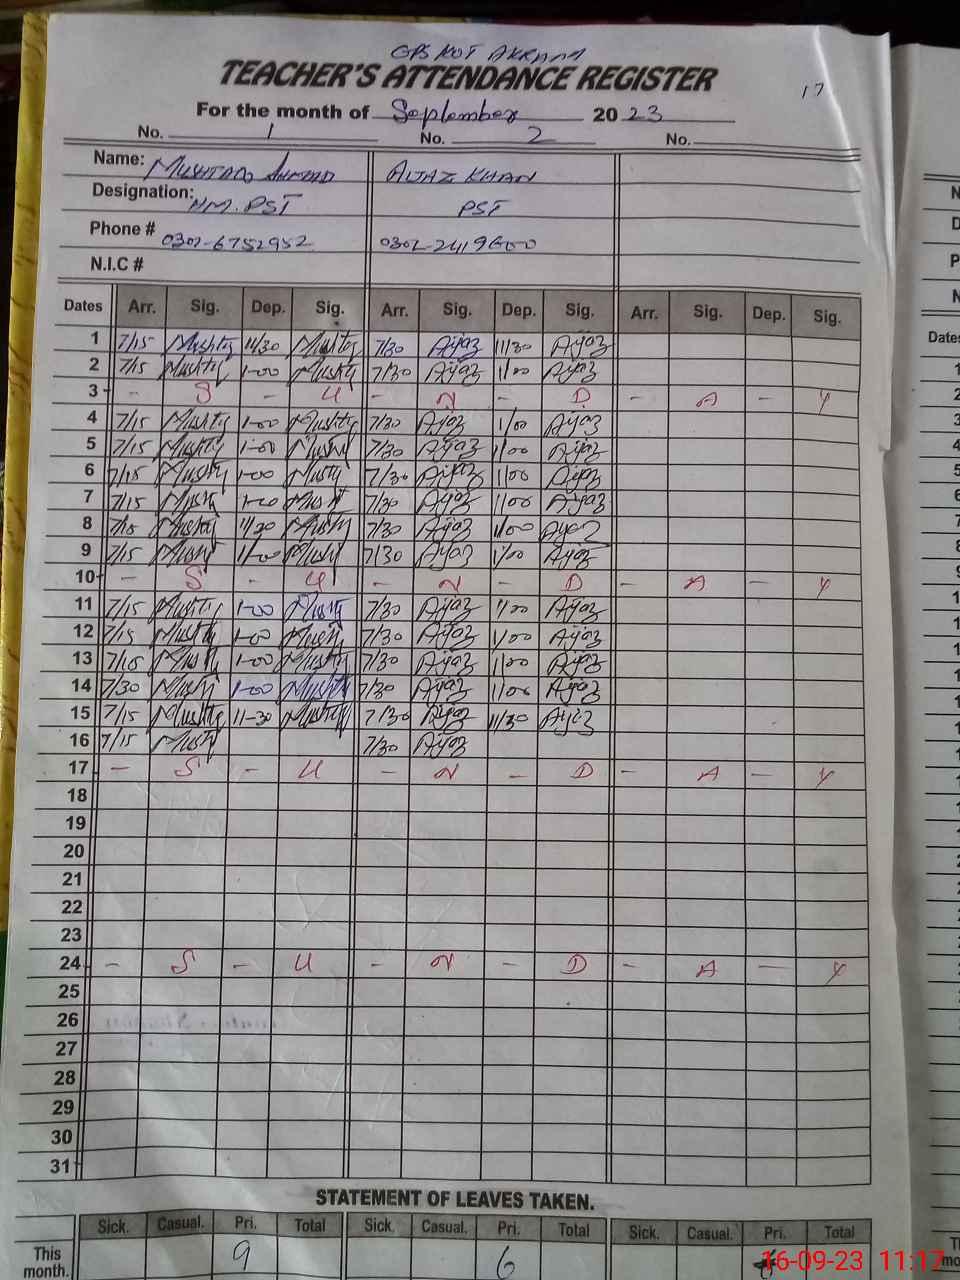 GPS KOT AKRAM
TEACHER'S ATTENDANCE REGISTER
17
For the month of September 2023
No. 1 No. 2 No.
Name: MUSHTAQ AHMAD AIJAZ KHAN
Designation: HM. PST PST
Phone # 0302-6752952 0302-2419600
N.I.C #
Dates Arr. Sig. Dep. Sig. Arr. Sig. Dep. Sig. Arr. Sig. Dep. Sig.
1 7/15 Mushtq 11/30 Mushtq 7/30 Ayaz 11/30 Ayaz
2 7/15 Mushtq 1-00 Mushtq 7/30 Ayaz 1/00 Ayaz
3 - S - U - N - D - A - Y
4 7/15 Mushtq 1-00 Mushtq 7/30 Ayaz 1/00 Ayaz
5 7/15 Mushtq 1-00 Mushtq 7/30 Ayaz 1/00 Ayaz
6 7/15 Mushtq 1-00 Mushtq 7/30 Ayaz 1/00 Ayaz
7 7/15 Mushtq 1-00 Mushtq 7/30 Ayaz 1/00 Ayaz
8 7/15 Mushtq 11/30 Mushtq 7/30 Ayaz 1/00 Ayaz
9 7/15 Mushtq 1-00 Mushtq 7/30 Ayaz 1/00 Ayaz
10 - S - U - N - D - A - Y
11 7/15 Mushtq 1-00 Mushtq 7/30 Ayaz 1/00 Ayaz
12 7/15 Mushtq 1-00 Mushtq 7/30 Ayaz 1/00 Ayaz
13 7/15 Mushtq 1-00 Mushtq 7/30 Ayaz 1/00 Ayaz
14 7/30 Mushtq 1-00 Mushtq 7/30 Ayaz 1/00 Ayaz
15 7/15 Mushtq 11-30 Mushtq 7/30 Ayaz 11/30 Ayaz
16 7/15 Mushtq 7/30 Ayaz
17 - S - U - N - D - A - Y
18
19
20
21
22
23
24 - S - U - N - D - A - Y
25
26
27
28
29
30
31
STATEMENT OF LEAVES TAKEN.
Sick. Casual. Pri. Total Sick. Casual. Pri. Total Sick. Casual. Pri. Total
This month. 9 6
16-09-23 11:17